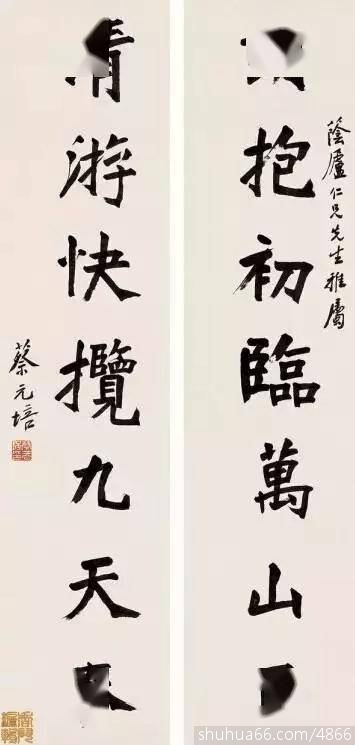 蔭廬仁兄先生雅屬
抱初臨萬山
清游快攬九天
蔡元培
shuhua66.com/4866